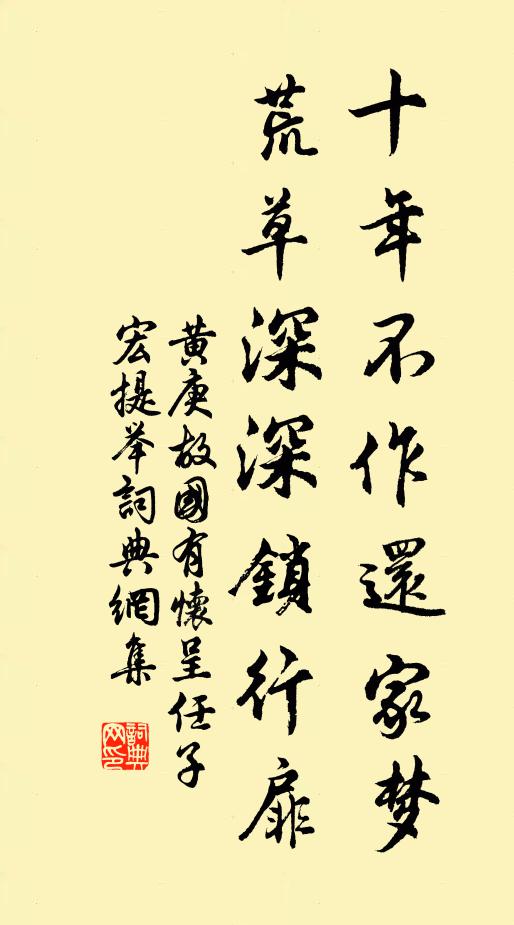 十年不作還家梦
荒草深深鎖行扉
黄庚故國有懷呈任子
宏提举詞典網集
詞典网印